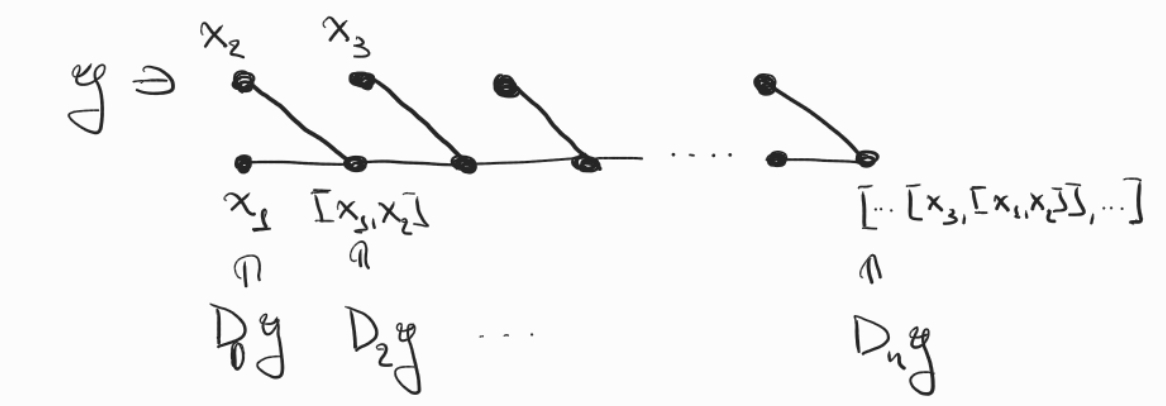 x₂ x₃
𝔤 ∋
x₁ [x₁,x₂] [... [x₃,[x₁,x₂]],...]
∩ ∩ ∩
D₀𝔤 D₂𝔤 ... Dₙ𝔤